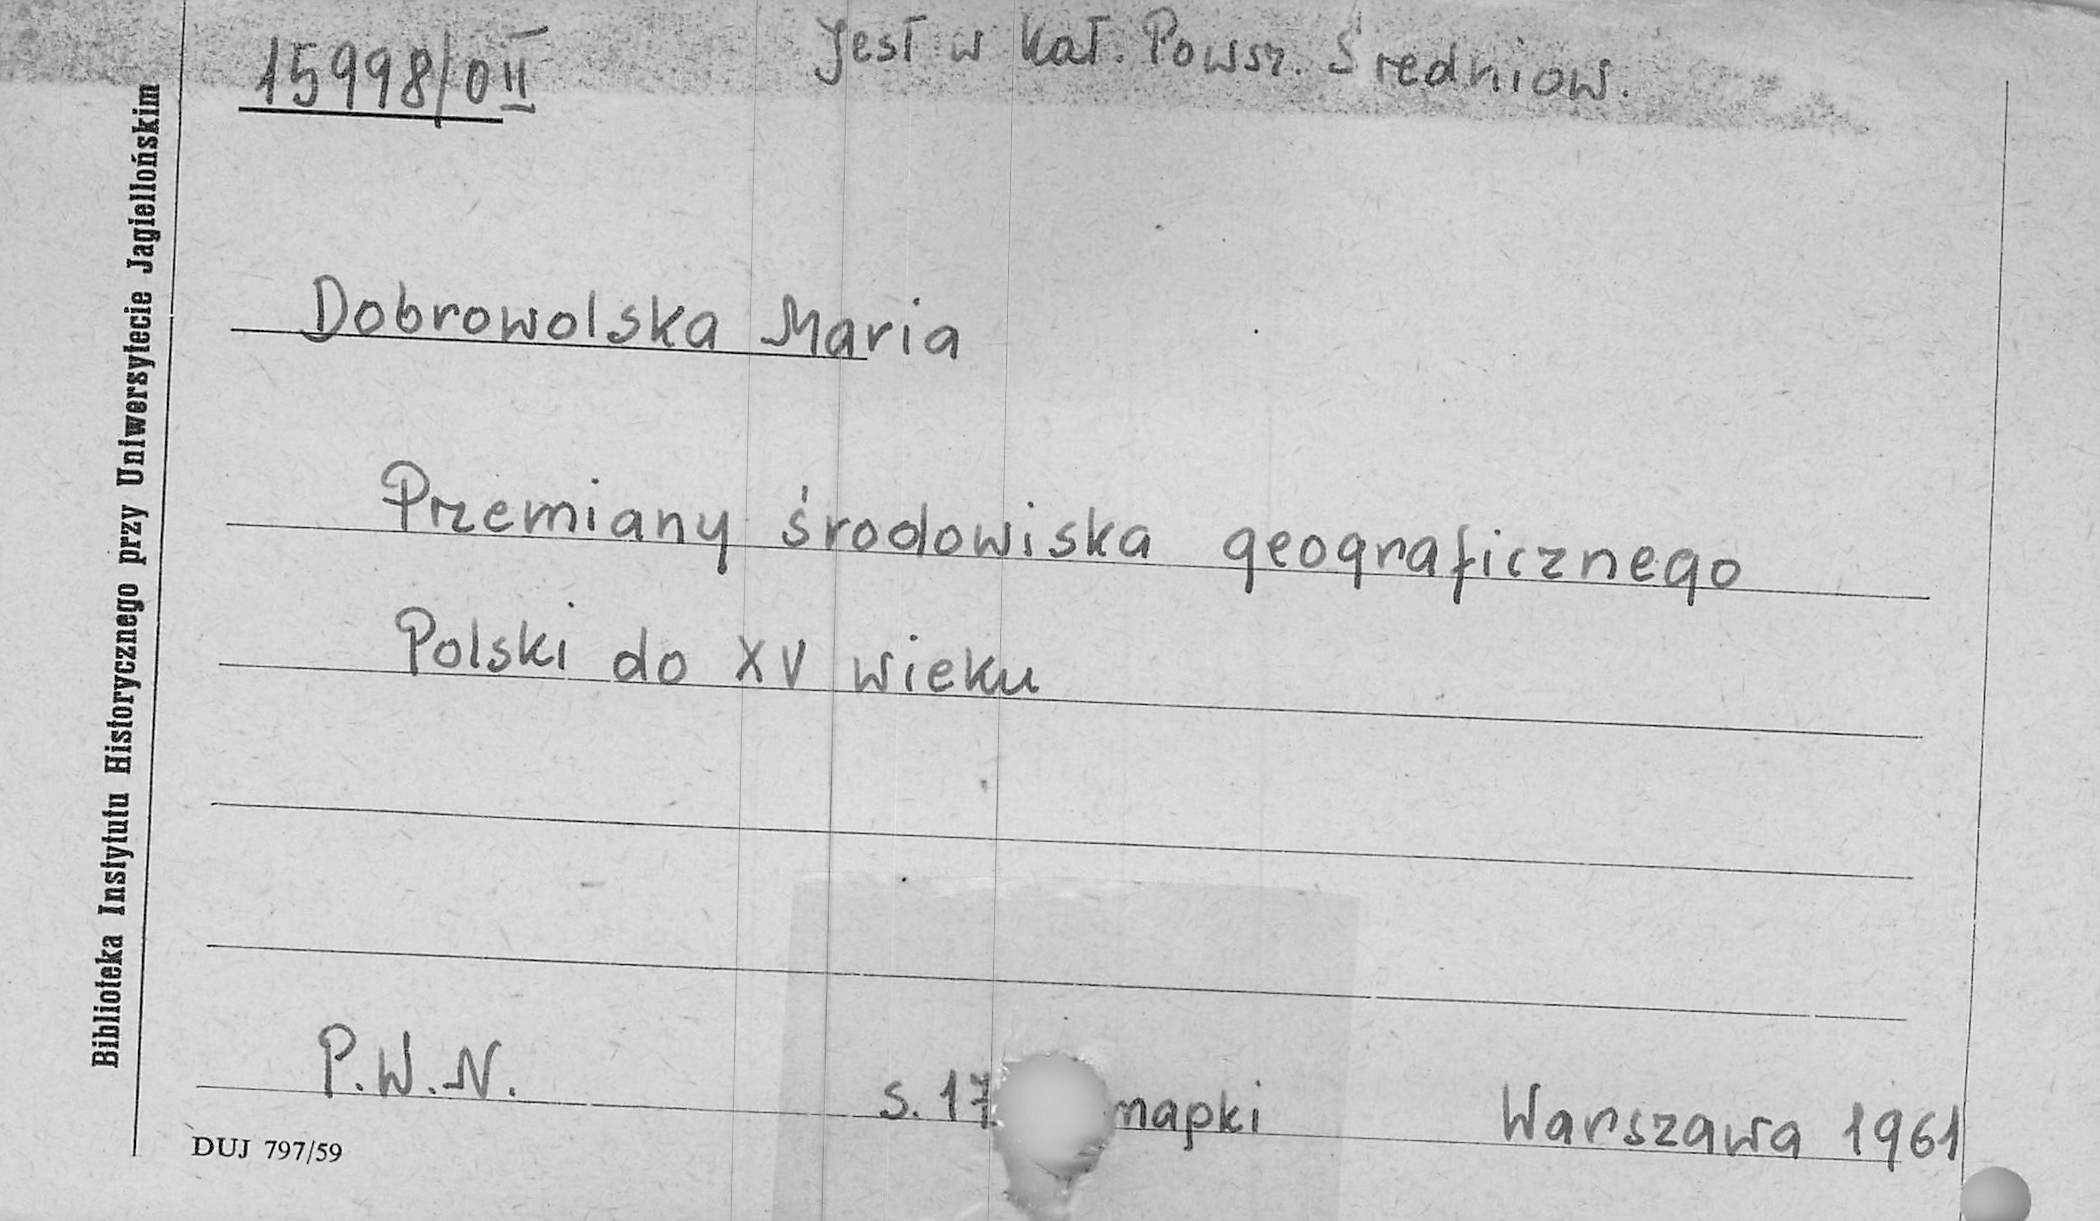 15998/0II
Jest w Kat. Powsz. Średniow.
Biblioteka Instytutu Historycznego przy Uniwersytecie Jagiellońskim
Dobrowolska Maria
Przemiany środowiska geograficznego
Polski do XV wieku
P.W.N. s. 17 mapki Warszawa 1961
DUJ 797/59